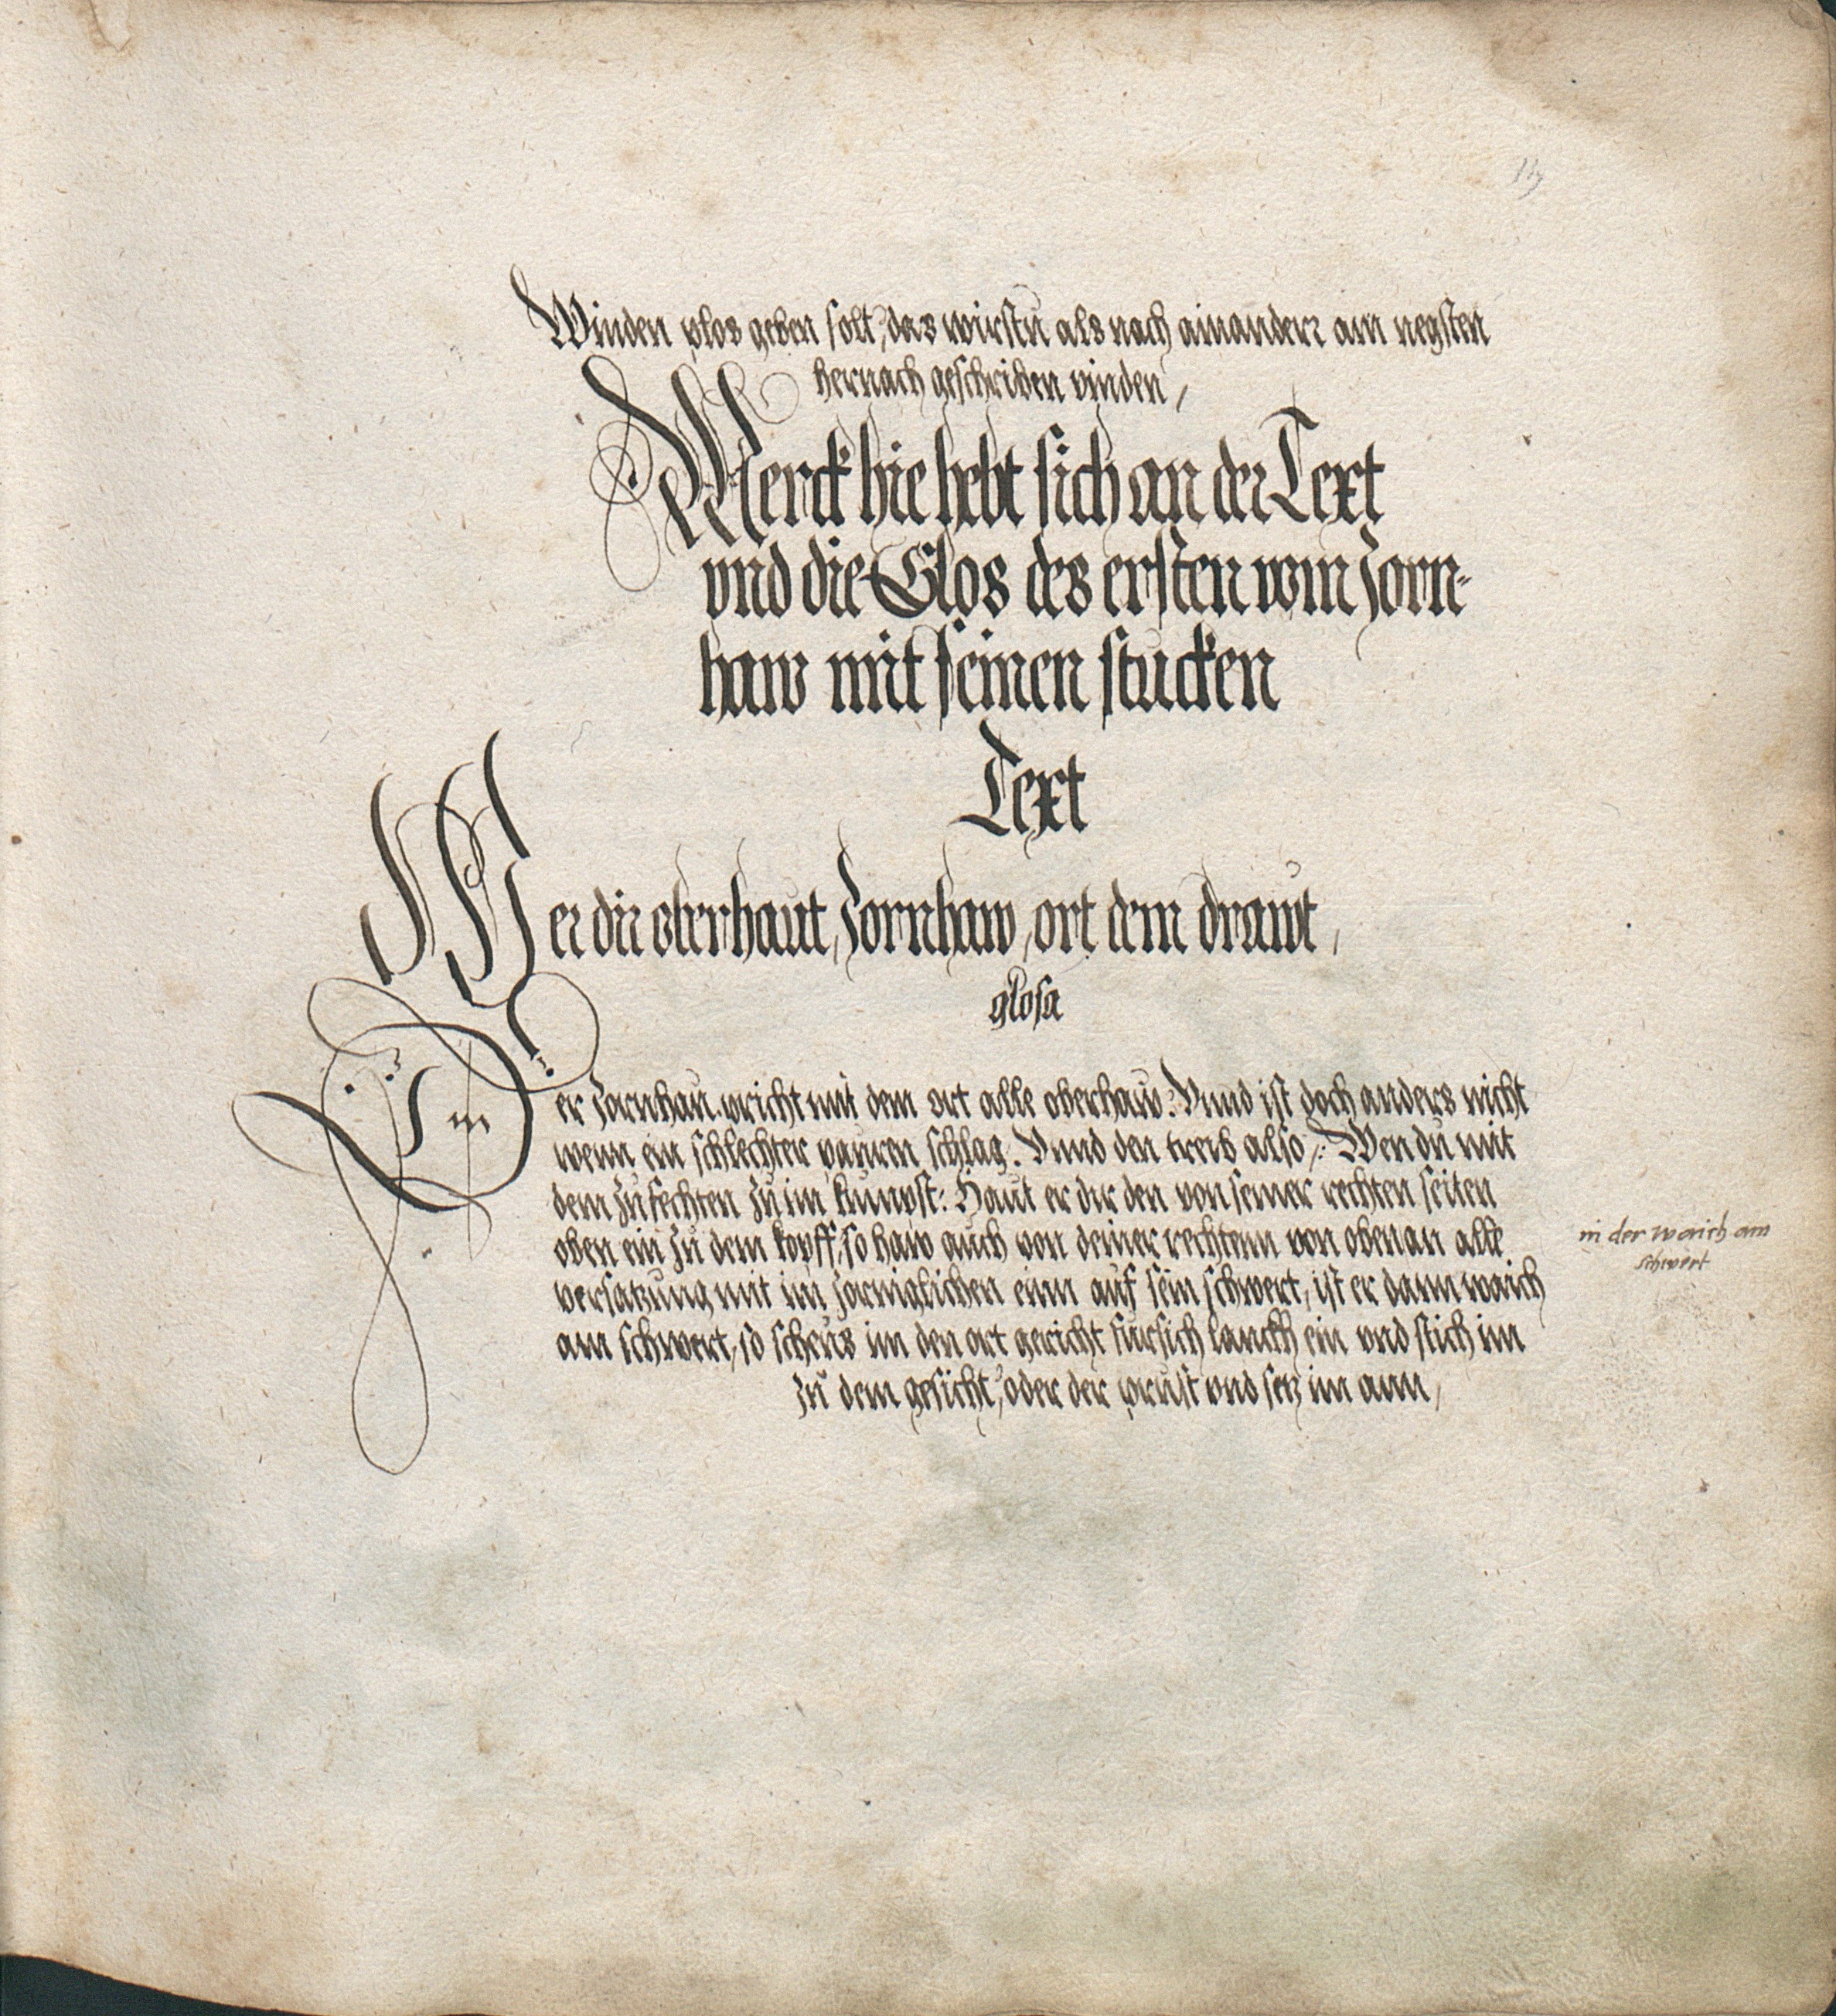 Winden plos geben solt, das wirstu als nach ainander am negsten
hernach geschriben vinden,
Merck hie hebt sich an der Text
vnd die Glos des ersten vom Zorn-
haw mit seinen stucken
Text
Wer dir oberhaut, Zornhaw, ort dem drawt,
glosa
Der Zornhau pricht mit dem ort alle oberhaw. Vnnd ist doch anders nicht
wenn ein schlechter pauren schlag. Vnnd den treib also: Wen du mit
dem Zu fechten Zu im kumpst: Haut er dir den von seiner rechten seiten
oben ein Zu dem kopff, so haw auch von deiner rechtenn von oben an alle
versatzung mit im Zorniglichen einn auf sein schwert, ist er dann waich
am schwert, so scheus im den ort gericht fursich lanckh ein vnd stich im
Zu dem gesicht, oder der prust vnd setz im ann,
in der waich am
schwert